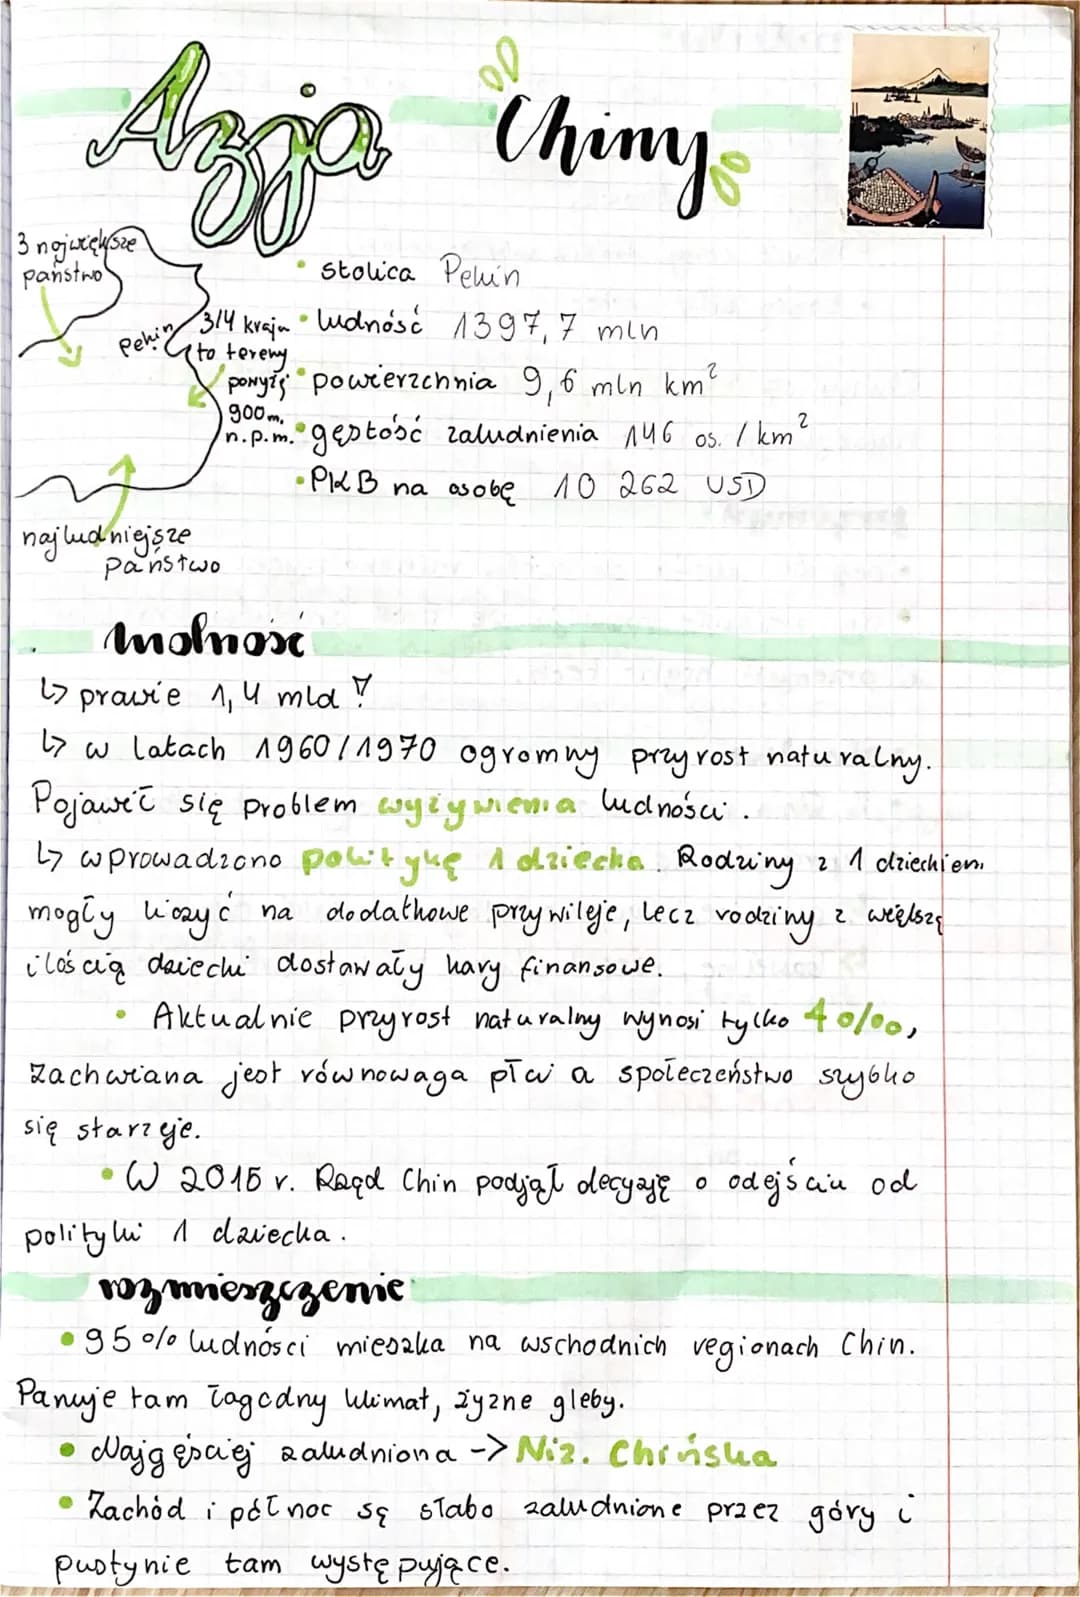 Azja Chiny
3 największe
państwo
Pekin
3/4 kraju
to tereny
powyżj
900m.
n.p.m.
najludniejsze
państwo
• stolica Pekin
• ludność 1397,7 mln
• powierzchnia 9,6 mln km²
• gęstość zaludnienia 146 os. / km²
• PKB na osobę 10 262 USD
ludność
↳ prawie 1,4 mld !
↳ w latach 1960/1970 ogromny przyrost naturalny.
Pojawił się problem wyżywienia ludności.
↳ wprowadzono politykę 1 dziecka. Rodziny z 1 dzieckiem
mogły liczyć na dodatkowe przywileje, lecz rodziny z większą
ilością dziecki dostawały kary finansowe.
• Aktualnie przyrost naturalny wynosi tylko 4 o/oo,
zachwiana jest równowaga płci a społeczeństwo szybko
się starzeje.
• W 2015 r. Rząd Chin podjął decyzję o odejściu od
polityki 1 dziecka.
rozmieszczenie
• 95 % ludności mieszka na wschodnich regionach Chin.
Panuje tam łagodny klimat, żyzne gleby.
• Najgęściej zaludniona -> Niz. Chińska
• Zachód i północ są słabo zaludnione przez góry i
pustynie tam występujące.